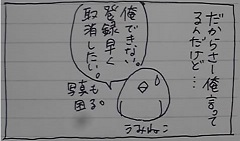 だからさー俺言って
るんだけど…
俺できない。
登録早く
取消したい。
写真も
困る。
うみねこ